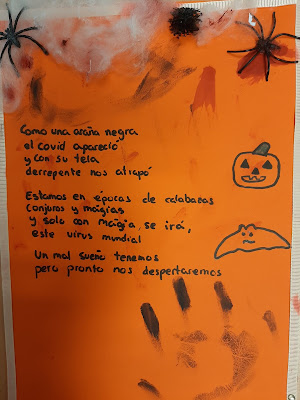 Como una araña negra
el covid apareció
y con su tela
derrepente nos atrapó
Estamos en épocas de calabazas
Conjuros y mágias
y solo con magia, se irá,
este virus mundial
Un mal sueño tenemos
pero pronto nos despertaremos